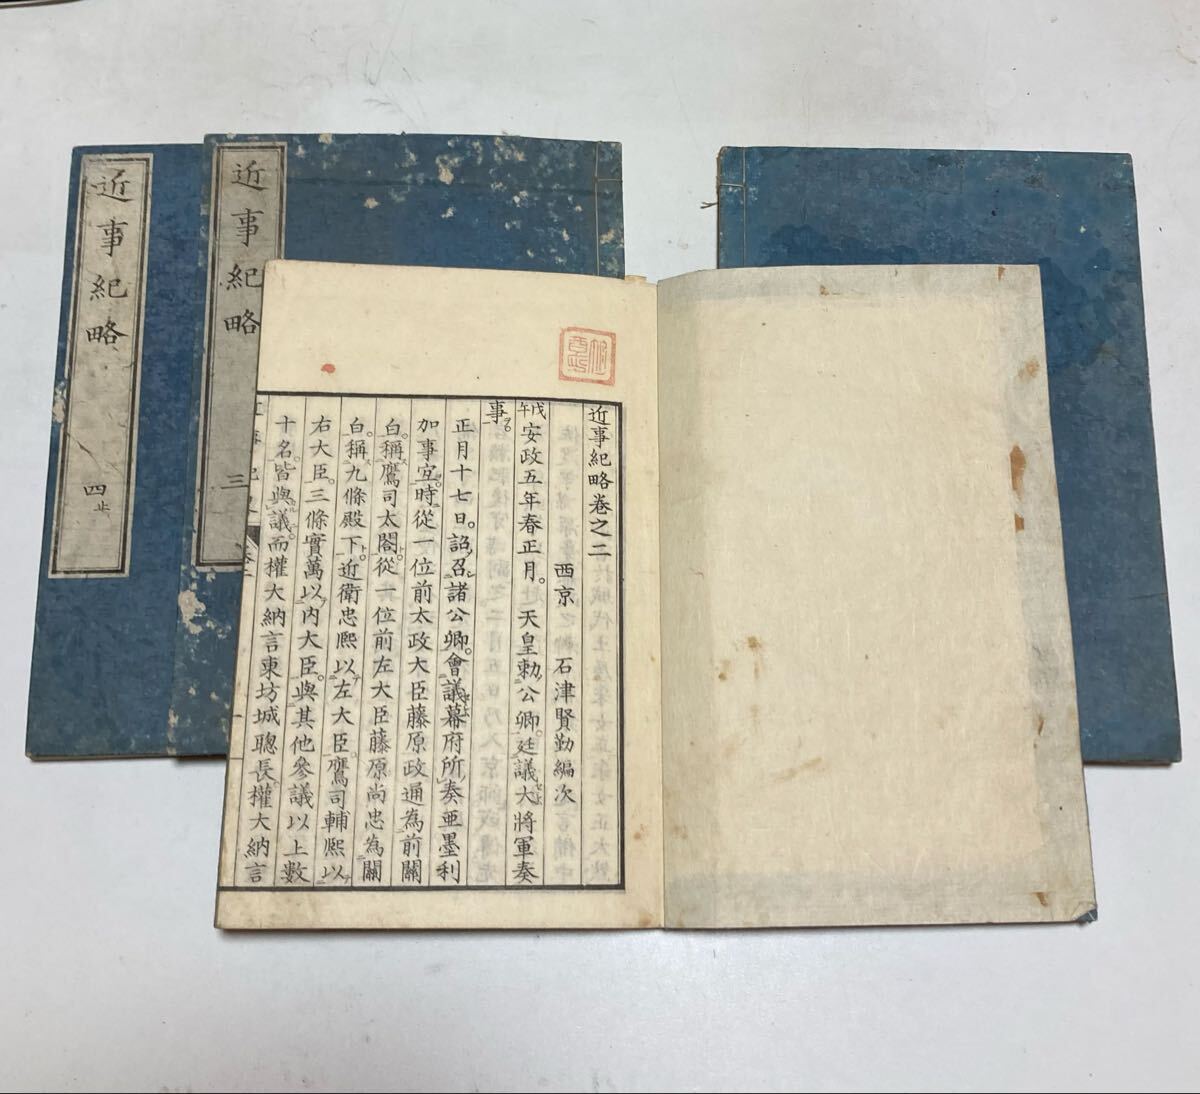 近事紀略
四
近事紀略
三
近事紀略卷之二
西京 石津賢勤編次
戊午安政五年春正月。天皇勅公卿。廷議大將軍奏
事。
正月十七日。詔召諸公卿。會議幕府所奏亜墨利
加事宜。時從一位前太政大臣藤原政通為前關
白。稱鷹司太閤。從一位前左大臣藤原尚忠為關
白。稱九條殿下。近衛忠熙以左大臣。鷹司輔熙以
右大臣。三條實萬以内大臣。與其他參議以上數
十名。皆與議。而權大納言東坊城聰長。權大納言